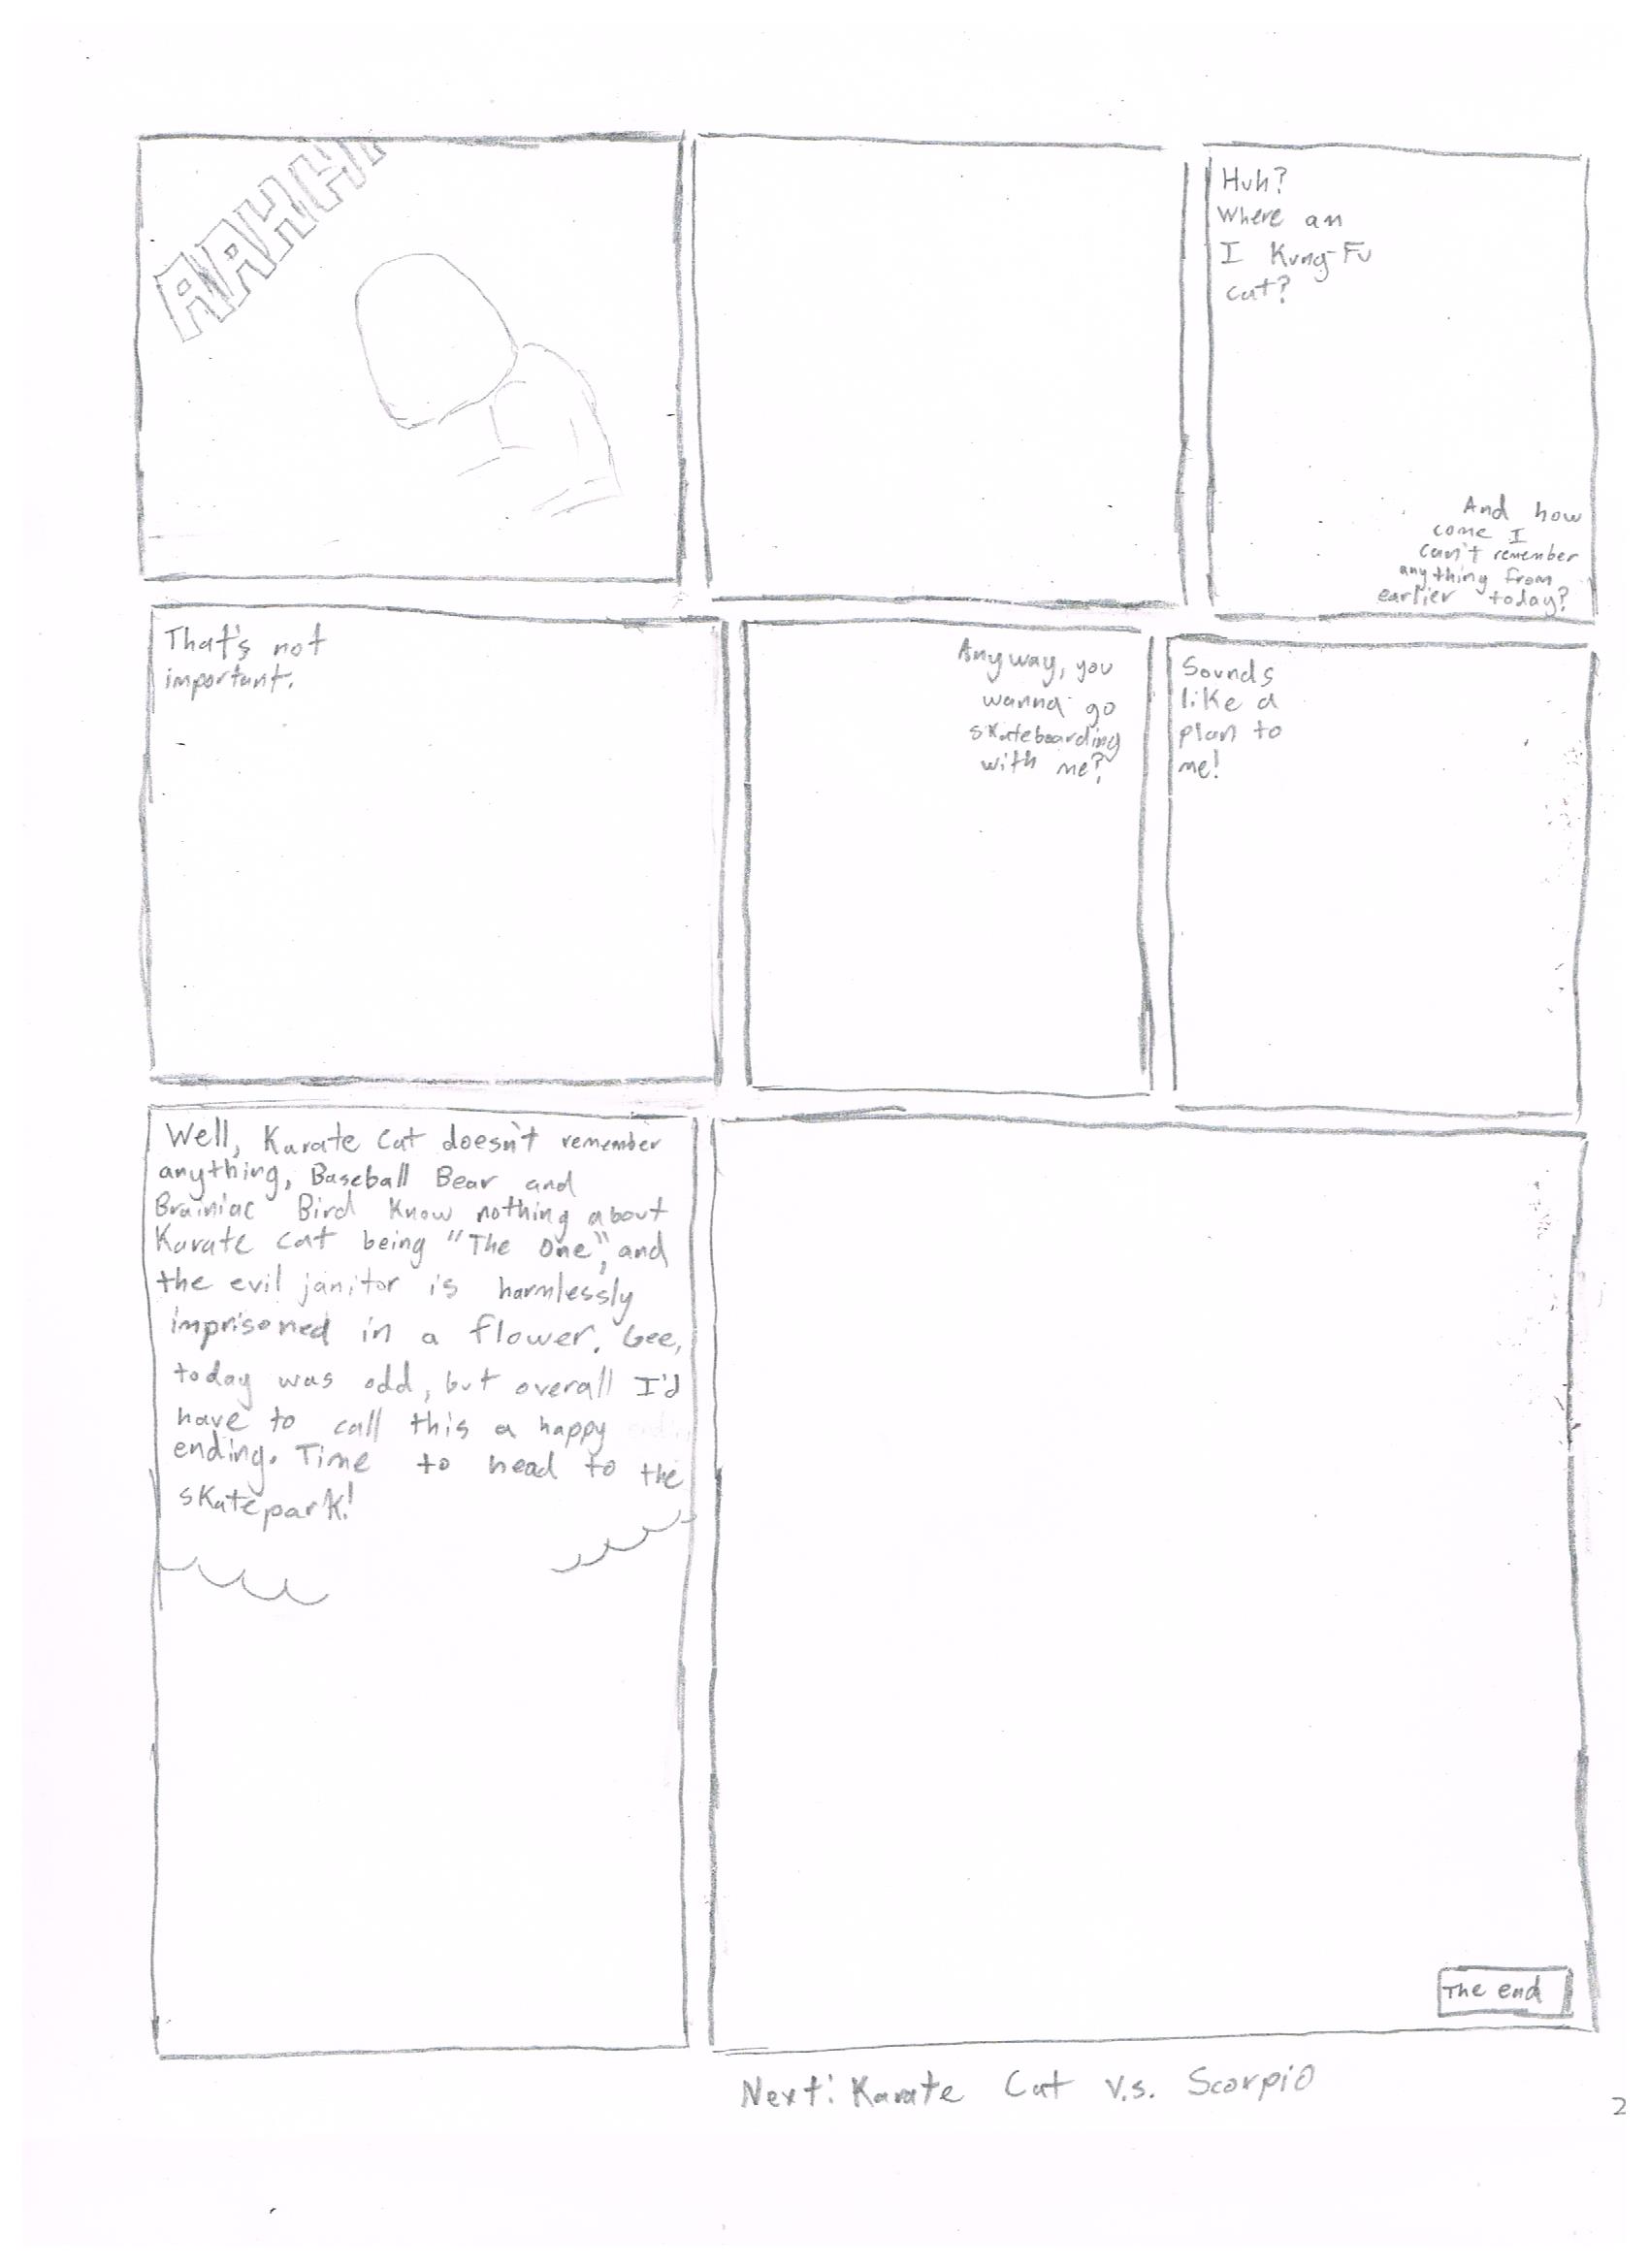 AAHHH
Huh?
Where am
I Kung-Fu
cat?
And how
come I
can't remember
anything from
earlier today?
That's not
important.
Anyway, you
wanna go
skateboarding
with me?
Sounds
like a
plan to
me!
Well, Karate Cat doesn't remember
anything, Baseball Bear and
Brainiac Bird know nothing about
Karate cat being "The One", and
the evil janitor is harmlessly
imprisoned in a flower. Gee,
today was odd, but overall I'd
have to call this a happy
ending. Time to head to the
skatepark!
The end
Next: Karate Cat v.s. Scorpio
2